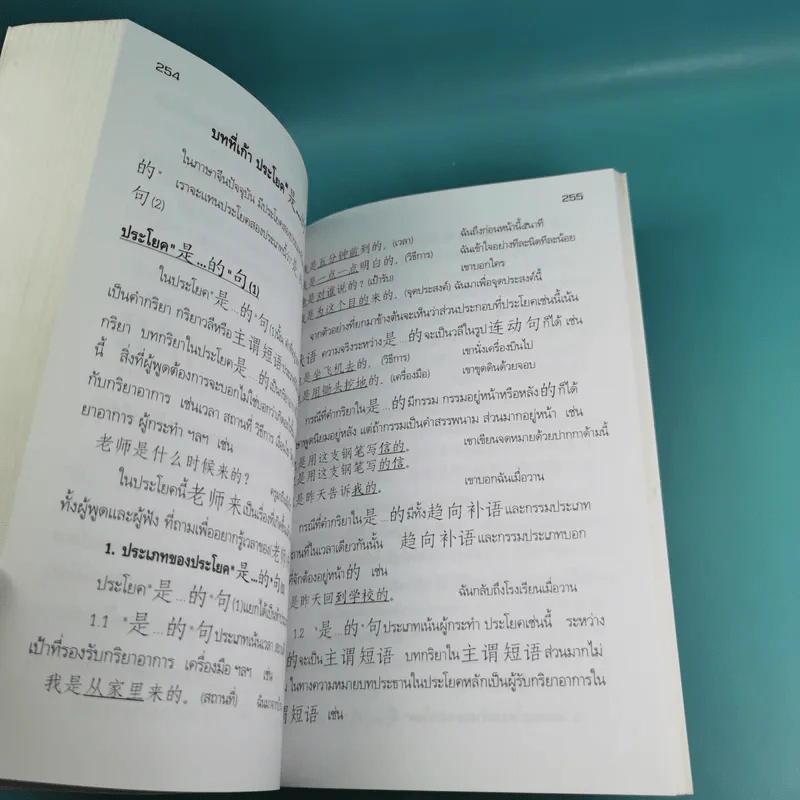 254
บทที่เก้า ประโยค"是...
ในภาษาจีนปัจจุบัน มีประโยคสอง
的" เราจะแทนประโยคสองประเภทนี้ว่า"
句(2)
ประโยค"是...的"句(1)
ในประโยค"是...的"句(1)
เป็นคำกริยา กริยาวลีหรือ主谓短语
กริยา บทกริยาในประโยค是...的
นี้ สิ่งที่ผู้พูดต้องการจะบอกไม่ใช่บอกว่า
กับกริยาอาการ เช่นเวลา สถานที่ วิธีการ
ยาอาการ ผู้กระทำ ฯลฯ เช่น
老师是什么时候来的？
ในประโยคนี้老师来เป็นเรื่องที่
ทั้งผู้พูดและผู้ฟัง ที่ถามเพื่ออยากรู้เวลาของ(老师
1. ประเภทของประโยค"是...的"句(1)
ประโยค"是...的"句(1)แยกได้เป็น
1.1 "是...的"句ประเภทเน้นเวลา
เป้าที่รองรับกริยาอาการ เครื่องมือ ฯลฯ เช่น
我是从家里来的。(สถานที่) ฉันมาจาก
255
是五分钟前到的。(เวลา) ฉันถึงก่อนหน้านี้5นาที
是一点一点明白的。(วิธีการ) ฉันเข้าใจอย่างทีละนิดทีละน้อย
是对谁说的？(เป้ารับ) เขาบอกใคร
是为这个目的来的。(จุดประสงค์) ฉันมาเพื่อจุดประสงค์นี้
จากตัวอย่างที่ยกมาข้างต้นจะเห็นว่าส่วนประกอบที่ประโยคเช่นนี้เน้น
语 ความจริงระหว่าง是...的จะเป็นวลีในรูป连动句ก็ได้ เช่น
是坐飞机去的。(วิธีการ) เขานั่งเครื่องบินไป
是用锄头挖地的。(เครื่องมือ) เขาขุดดินด้วยจอบ
กรณีที่คำกริยาใน是...的มีกรรม กรรมอยู่หน้าหรือหลัง的ก็ได้
นิยมอยู่หลัง แต่ถ้ากรรมเป็นคำสรรพนาม ส่วนมากอยู่หน้า เช่น
是用这支钢笔写信的。 เขาเขียนจดหมายด้วยปากกาด้ามนี้
是用这支钢笔写的信。
是昨天告诉我的。 เขาบอกฉันเมื่อวาน
กรณีที่คำกริยาใน是...的มีทั้ง趋向补语และกรรมประเภท
สถานที่ในเวลาเดียวกันนั้น 趋向补语และกรรมประเภทบอก
ที่จักต้องอยู่หน้า的 เช่น
是昨天回到学校的。 ฉันกลับถึงโรงเรียนเมื่อวาน
1.2 "是...的"句ประเภทเน้นผู้กระทำ ประโยคเช่นนี้ ระหว่าง
的จะเป็น主谓短语 บทกริยาใน主谓短语ส่วนมากไม่
ในทางความหมายบทประธานในประโยคหลักเป็นผู้รับกริยาอาการใน
谓短语 เช่น